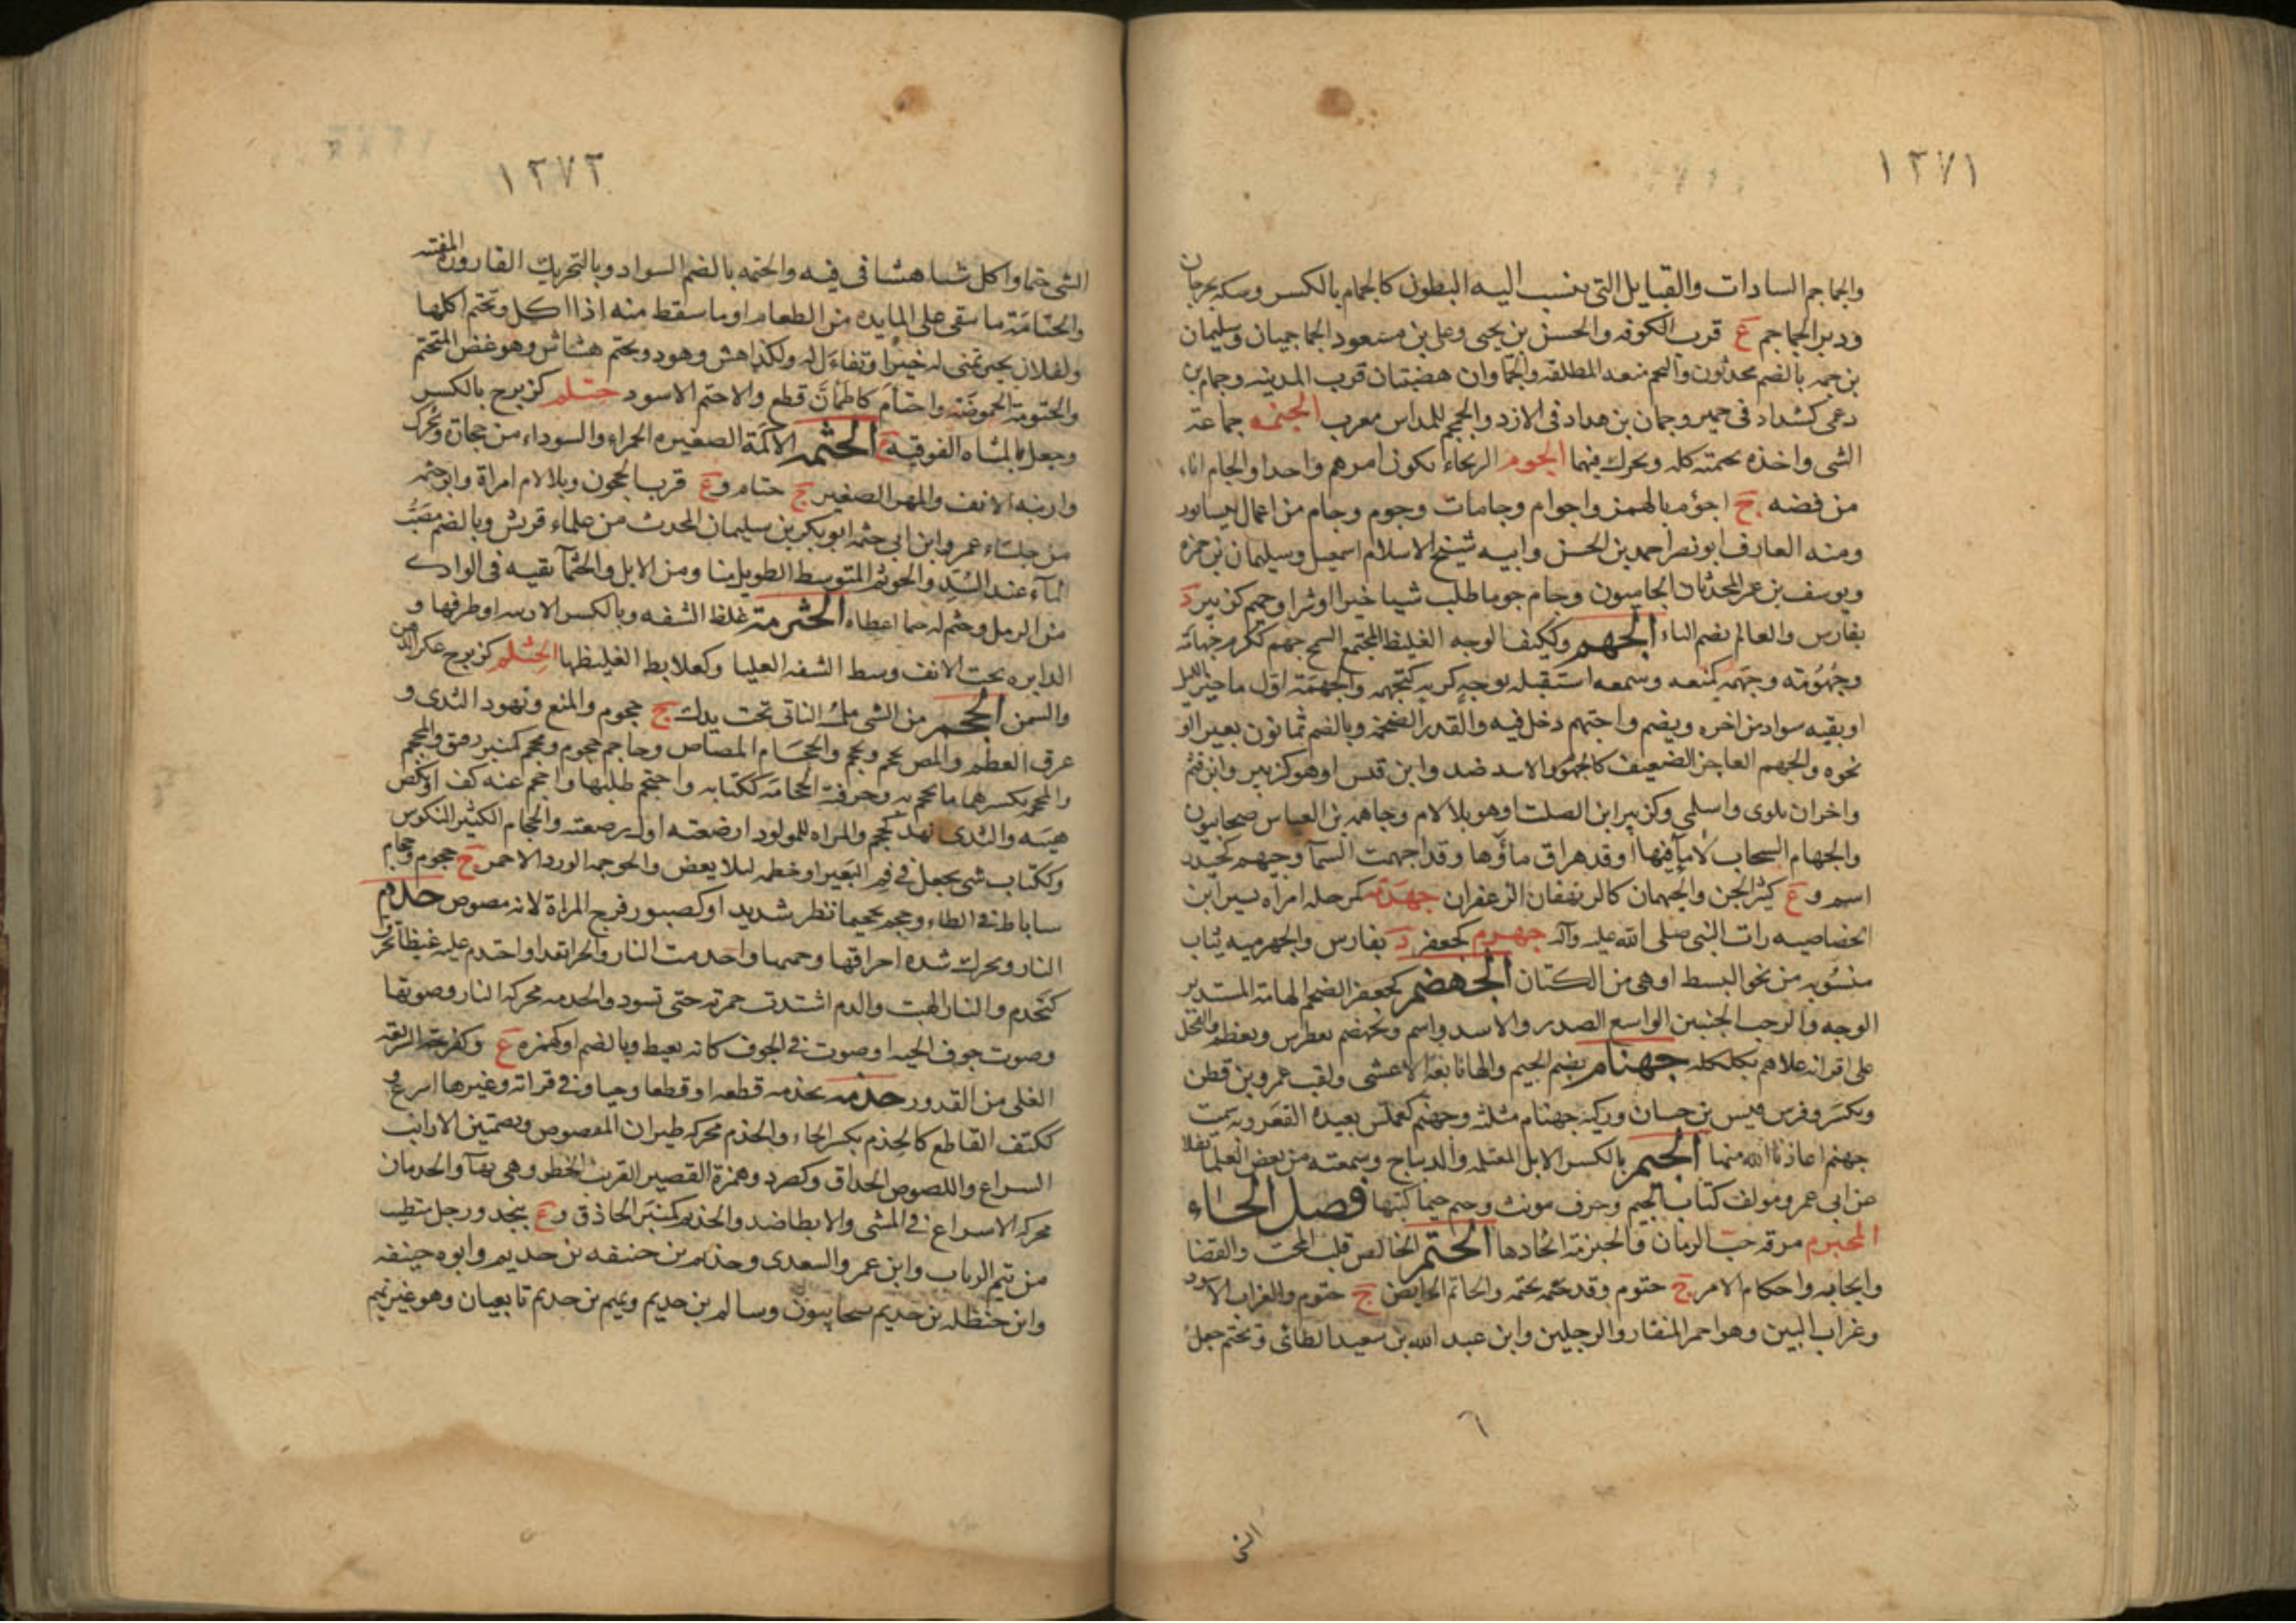 ١٢٧١
والجماجم السادات والقبايل التى ينسب اليه البطون كالجمام بالكسر وسكة بجرجان
ودير الجماجم ع قرب الكوفه والحسن بن يحيى وعلى بن مسعود الجماجميان وسليمان
بن جمه بالضم محدثون والجماوان هضبتان قرب المدينه وجمام بن
دعمى كشداد فى حمير وجمان بن هداد فى الازد والجمجم للمداس معرب الجنمه جماعة
الشى واخذه بجمته كله ويحرك فيهما الجوم الرعاء يكون امرهم واحدا والجام اناء
من فضه ج اجؤم بالهمز واجوام وجامات وجوم وجام من اعمال نيسابور
ومنه العارف ابو نصر احمد بن الحسن وابيه شيخ الاسلام اسمعيل وسليمان بن حمزه
ويوسف بن عمر المحدثان الجاميون وجام جوما طلب شيا خيرا او شرا وجميم كزبير د
بفارس والعالم بضم التاء الجهم وككيف الوجه الغليظ المجتمع السمج جهم ككرم جهامة
وجهومة وجهمه كمنعه وسمعه استقبله بوجه كريه كتجهمه والجهمة اول ماخير الليل
او بقيه سواد من اخره ويضم واجتهم دخل فيه والقدر الضخمة وبالضم ثمانون بعيرا او
نحوه والجهم العاجز الضعيف كالجهوم والاسد ضد وابن قيس او هو كزبير وابن قثم
واخران بلوى واسلمى وكزبير ابن الصلت او هو بلا لام وجاهمه بن العباس صحابيون
والجهام السحاب لا ماء فيها او قد هراق ماؤها وقد اجهمت السمآ وجيهم كحيدر
اسم وع كثير الجن والجيهمان كالريهقان الزعفران جهدمه كمرحله امراة بشير ابن
الخصاصيه رات النبى صلى الله عليه وآله جهرم كجعفر د بفارس والجهرميه ثياب
منسوبه من نحو البسط او هى من الكتان الجهضم كجعفر الضخم الهامة المستدير
الوجه والرحب الجنبين الواسع الصدر والاسد واسم وتجهضم تغطرس وتعظم والفحل
على اقرانه علاهم بكلكله جهنام بضم الجيم والها تابعة الاعشى ولقب عمرو بن قطن
ويكسر وفرس قيس بن حسان وركيه جهنام مثلثه وجهنم كعملس بعيدة القعر وبه سميت
جهنم اعاذنا الله منها الجيم بالكسر الابل المغتلمه والديباج وسمعته من بعض العلما نقلا
عن ابى عمرو مولف كتاب الجيم وحرف مونث وجيم جيما كتبها فصل الحاء
المحبرم مرقه حب الرمان والحبرمة اتخاذها الحتم الخالص قلب المحت والقضا
وايجابه واحكام الامر ج حتوم وقد حتمه يحتمه والحاتم القاضى ج حتوم والغراب الاسود
وغراب البين وهو احمر المنقار والرجلين وابن عبد الله بن سعيد الطائى وتحتم جعل
الشى
١٢٧٢
الشى حتما واكل شيا هشا فى فيه والحتمه بالضم السواد وبالتحريك القاروره المفتته
والحتامة ما بقى على المايده من الطعام او ما سقط منه اذا اكل وتحتم اكلها
ولفلان بخير تمنى له خيرا وتفاءل له ولكذا هش وهو ذو تحتم هشاش وهو غض المتحتم
والحتومة الحموضة واحتام كاطمان قطع والاحتم الاسود حتلم كزبرج بالكسر
وجعل بالمثناه الفوقيه ع الحثمه الاكمة الصغيره الحمراء والسوداء من حجاره ويحرك
وارنبه الانف والمهر الصغير ج حثام وع قرب الحجون وبلا لام امراة وابو حثمه
من جلساء عمر وابن ابى حثمه ابو بكر بن سليمان المحدث من علماء قريش وبالضم مصب
المآء عند السد والحوثم المتوسط الطويل منا ومن الابل والحثمآ بقيه فى الوادى
من الرمل وحثم له حثما اعطاه الحثرمة غلظ الشفه وبالكسر الارنبه او طرفها و
الدايره تحت الانف وسط الشفه العليا وكعلابط الغليظها الحثلم كزبرج عكر الدهن
والسمن الحجم من الشى ملمسه الناتى تحت يدك ج حجوم والمنع ونهود الثدى و
عرق العظم والمص يحجم ويحجم والحجام المصاص وحاجم حجوم ومحجم كمنبر رفيق والمحجم
والمحجمه بكسرهما ما يحجم به وحرفته الحجامة ككتابه واحتجم طلبها واحجم عنه كف او نكص
هيبه والثدى نهد كحجم والمراه للمولود ارضعته اول رضعة والحجام الكثير النكوص
وككتاب شى يجعل فى فم البعير او خطمه ليلا يعض والحوجمه الورد الاحمر ج حجوم وحجام
ساباط فى الطاء وحجم تحجيما نظر شديد او كصبور فرج المراة لانه مصوص حدم
النار ويحرك شده احراقها وحميها واحدمت النار والحر اتقدا واحتدم عليه غيظا تحرق
كتحدم والنار التهبت والدم اشتدت حمرته حتى تسود والحدمه محركه النار وصوتها
وصوت جوف الحيه او صوت فى الجوف كانه تغيظ وبالضم او كهمزه ع وكفرحه السريعه
الغلى من القدور حذمه يحذمه قطعه او قطعا وحيا وفى قراته وغيرها اسرع و
ككتف القاطع كالحذيم بكسر الحاء والحذم محركه طيران المقصوص وبضمتين الارانب
السراع واللصوص الحذاق وكصرد وهمزة القصير القريب الخطو وهى بهآ والحذمان
محركه الاسراع فى المشى والابطا ضد والحذيم كمنبر الحاذق وع بنجد ورجل متطبب
من تيم الرباب وابن عمر والسعدى وحذيم بن حنيفه بن حذيم وابوه حنيفه
وابن حنظله بن حذيم صحابيون وسالم بن حذيم وتميم بن حذيم تابعيان وهو غير تميم